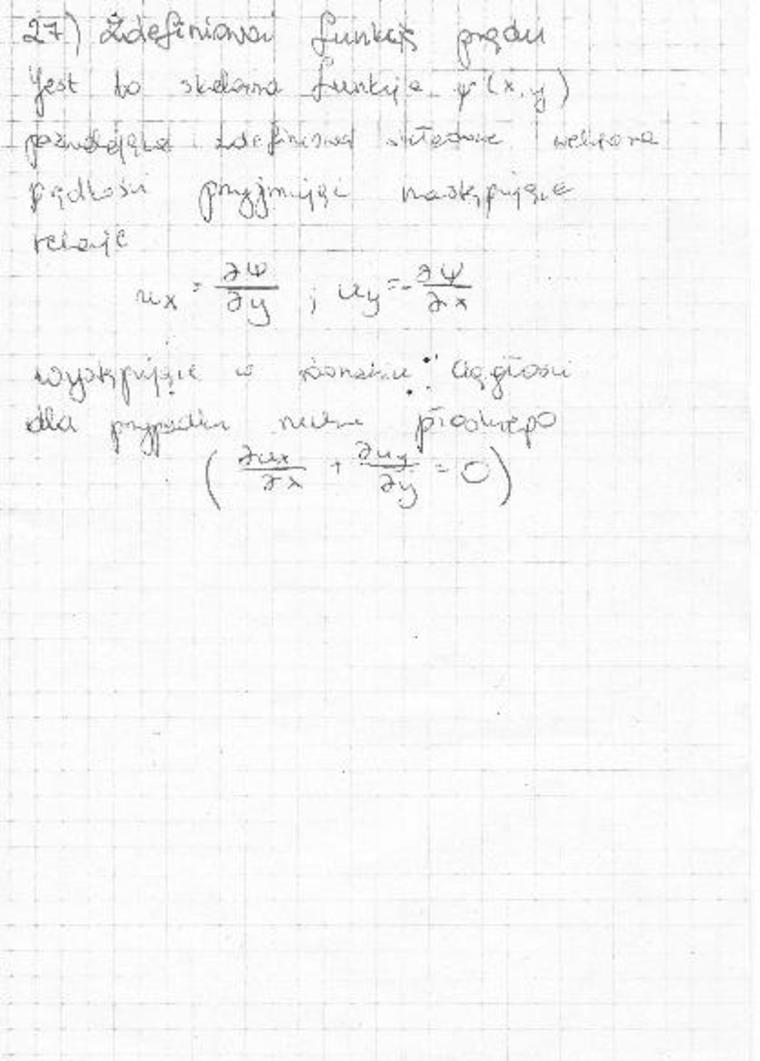 27) Zdefiniować funkcję prądu
Jest to skalarna funkcja ψ(x,y)
pozwalająca zdefiniować składowe wektora
prędkości przyjmując następujące
relacje
ux = ∂ψ/∂y ; uy = -∂ψ/∂x
występujące w równaniu ciągłości
dla przypadku ruchu płaskiego
(∂ux/∂x + ∂uy/∂y = 0)